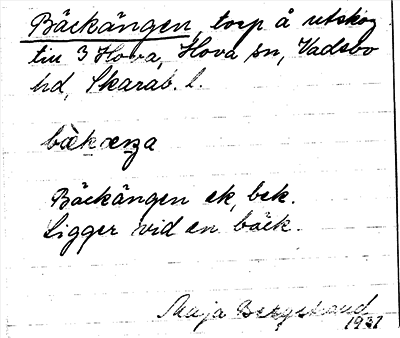 Bäckängen, torp å utskog
till 3 Hova, Hova sn, Vadsbo
hd, Skarab. l.
Bäckängen ek, bek.
Ligger vid en bäck.
Maja Bergstrand
1931